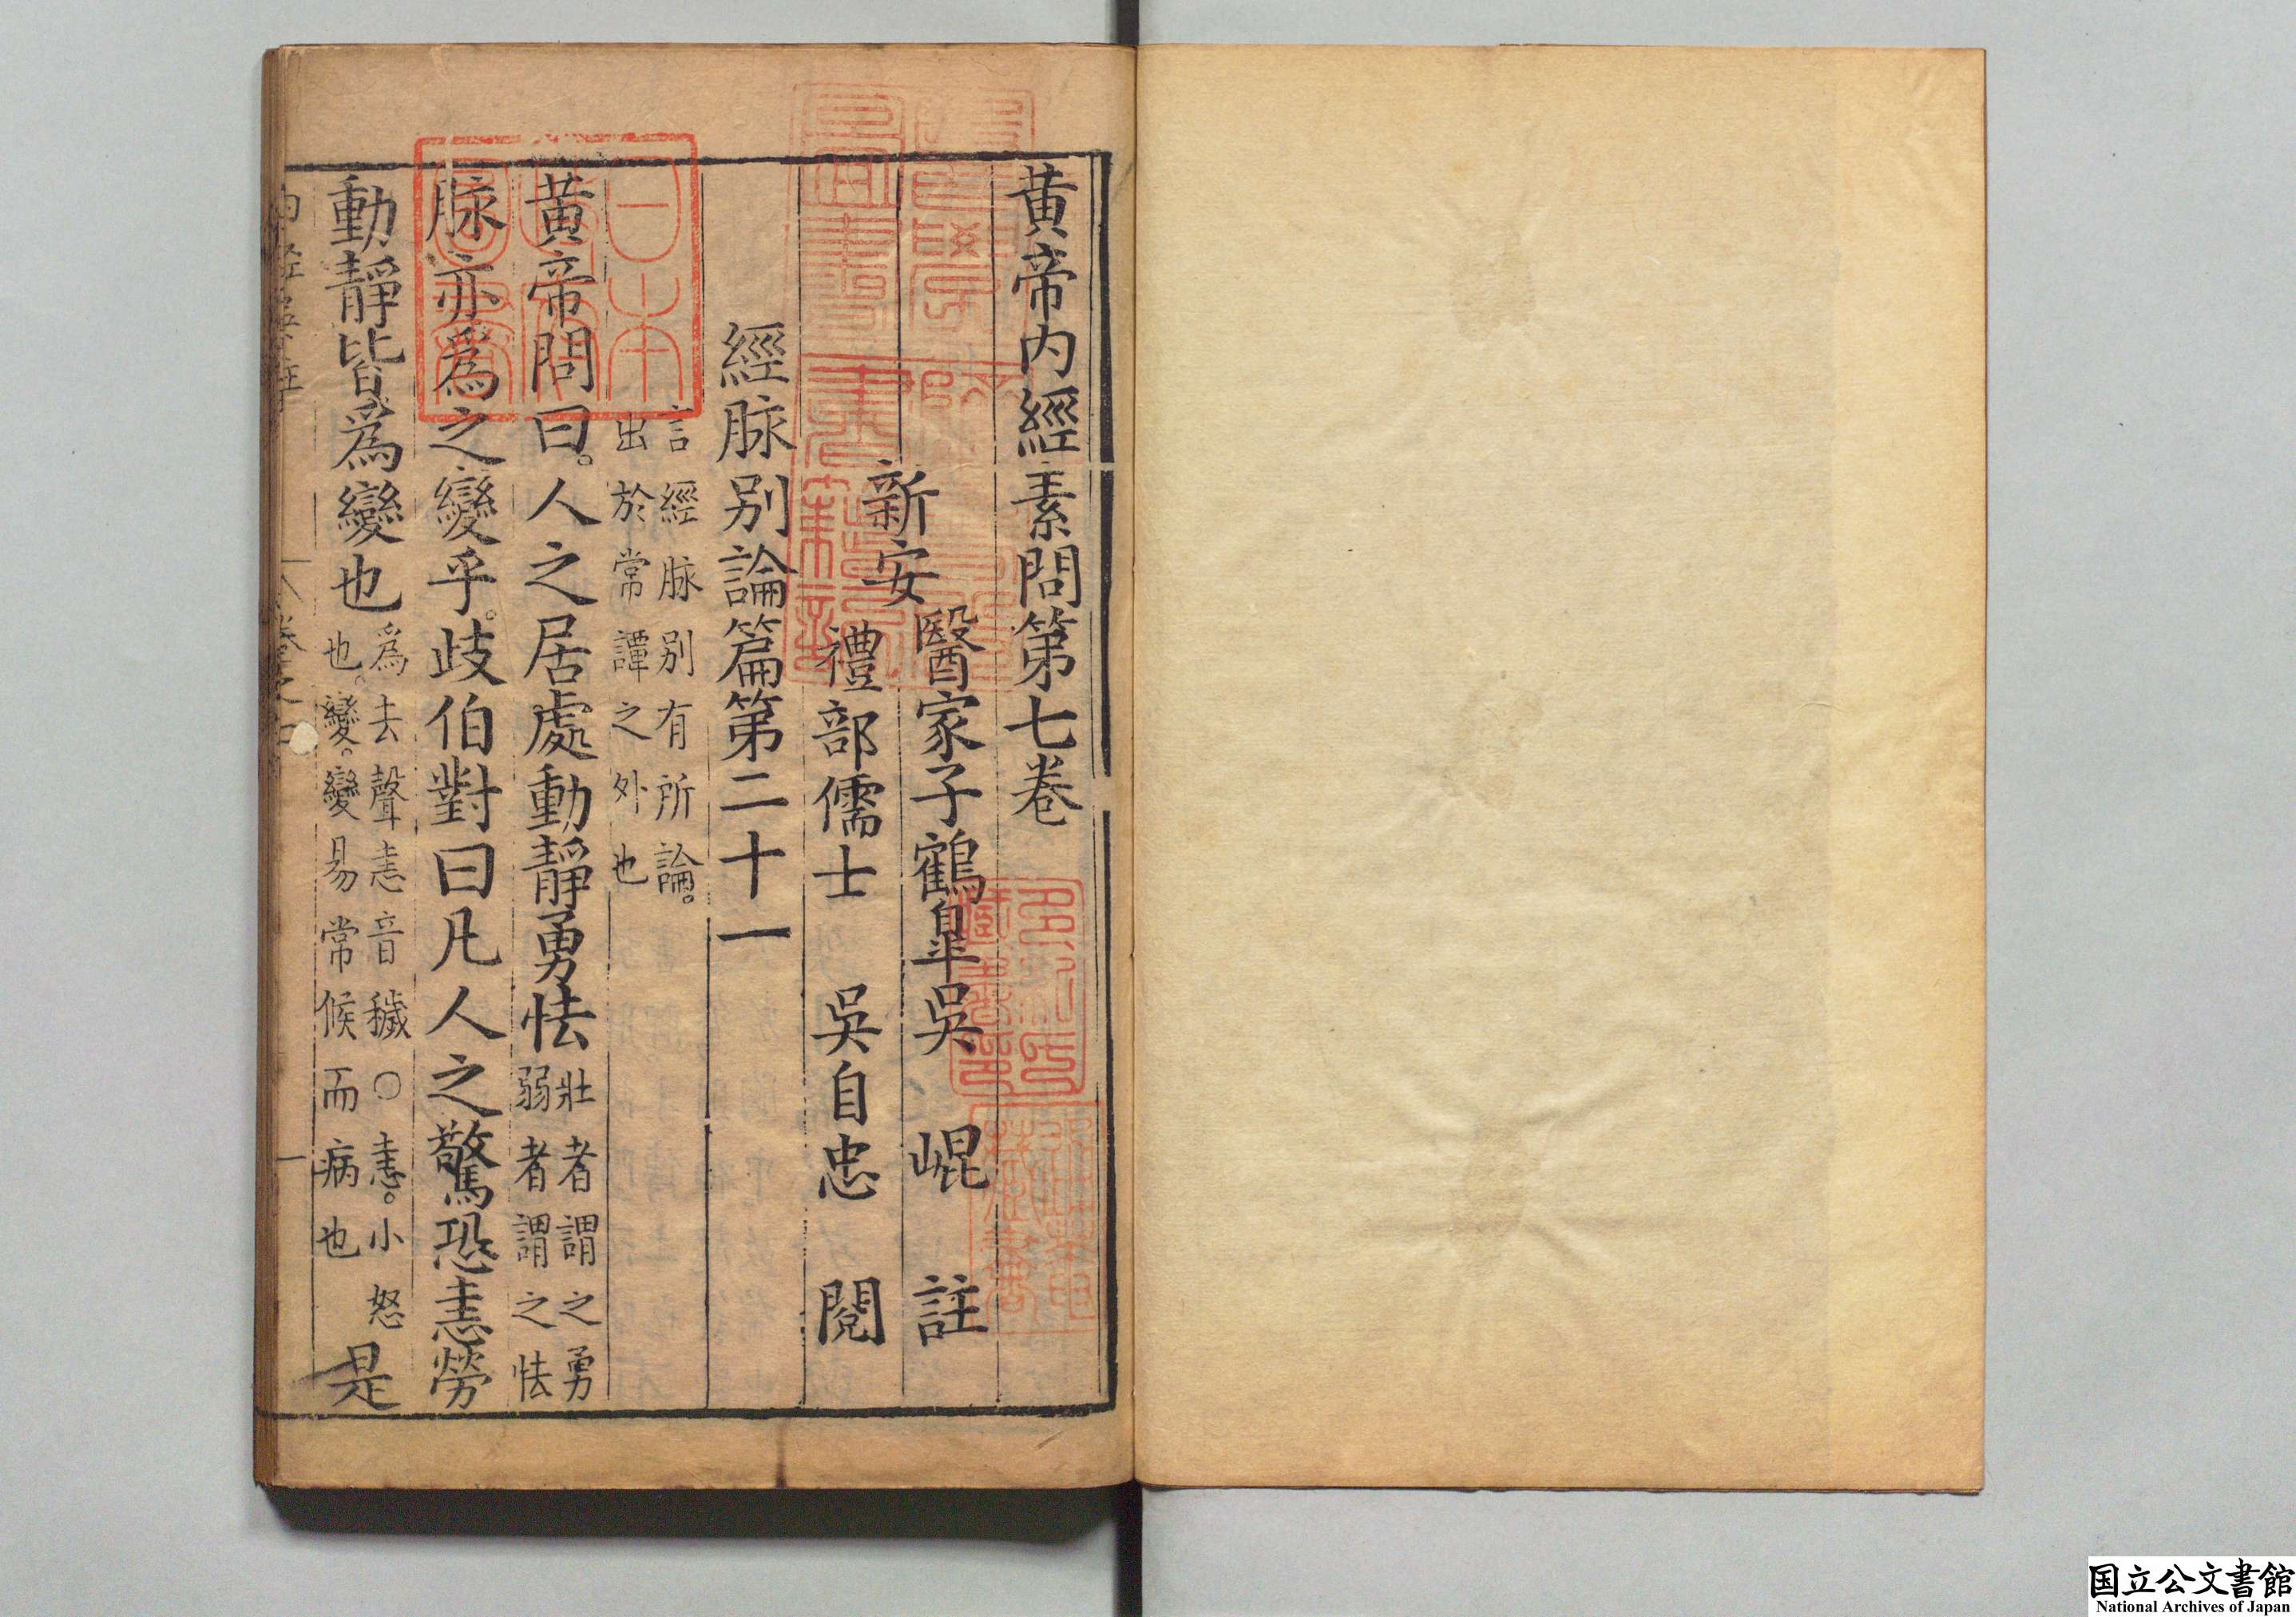 黄帝内經素問第七卷
新安
醫家子鶴皐吳崐註
禮部儒士吳自忠閱
經脉别論篇第二十一
言經脉别有所論。
出於常譚之外也
黄帝問曰。人之居處動靜勇怯
壯者謂之勇
弱者謂之怯
脉亦爲之變乎。歧伯對曰凡人之驚恐恚勞
動靜皆爲變也
爲去聲恚音穢○恚。小怒
也。變。變易常候而病也
是
日本
国立公文書館
National Archives of Japan